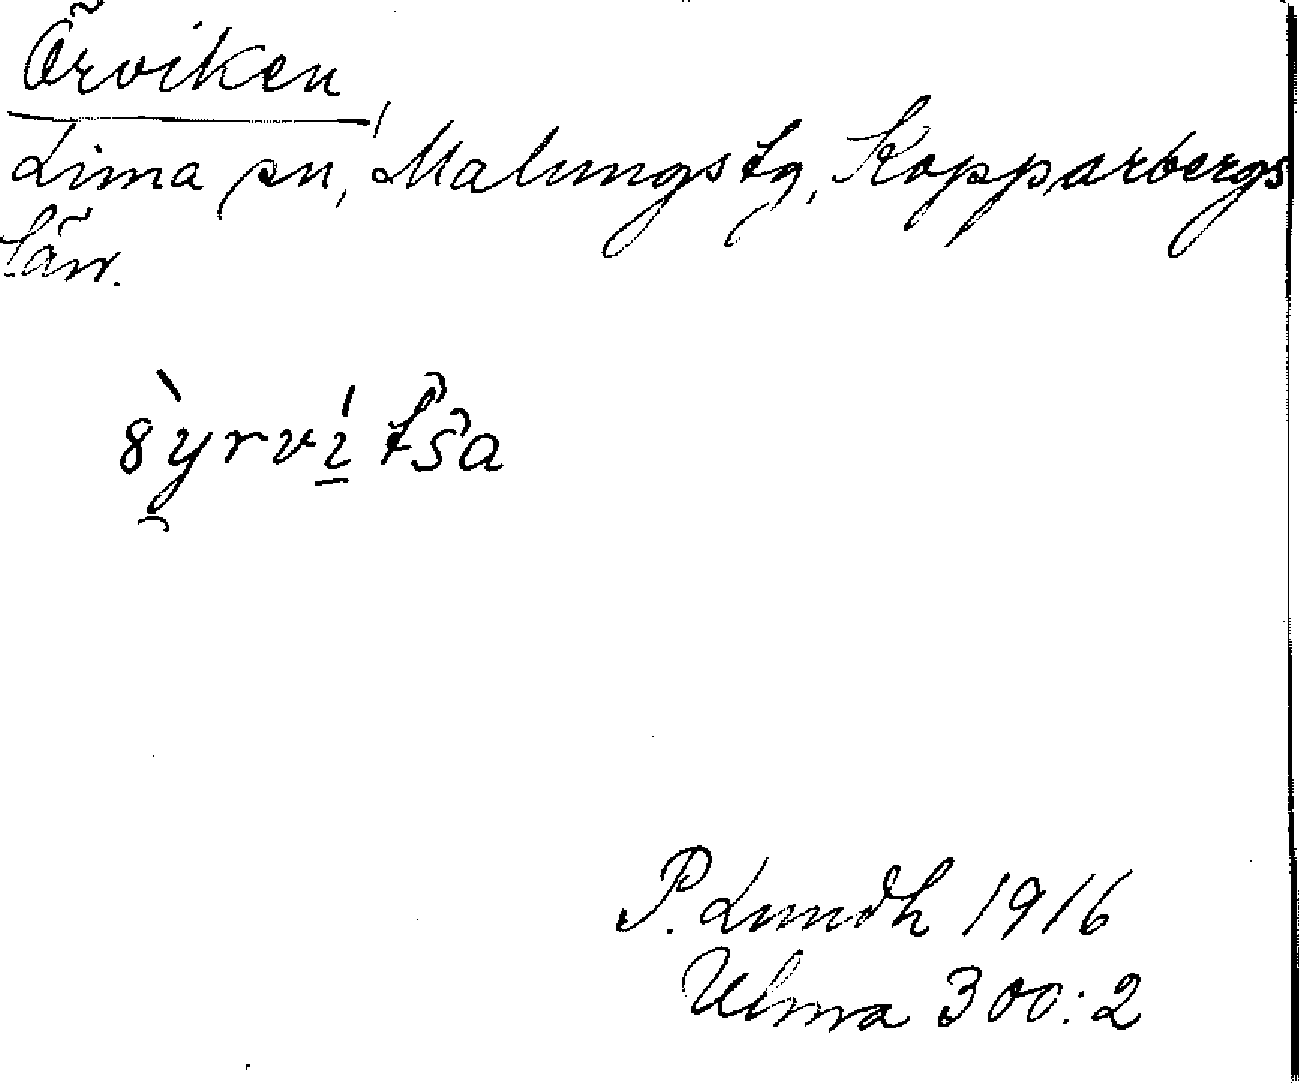 Örviken
Lima sn, Malungs tg, Kopparbergs
län.
P. Lundh 1916
Ulma 300:2